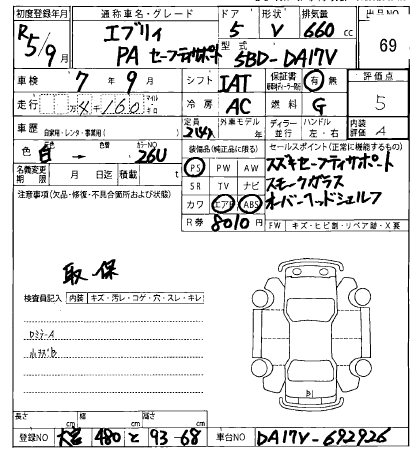 初度登録年月 通称車名・グレード ドア 形状 排気量 出品NO
R5/9月 エブリイ 5 V 660cc 69
PA セーフティサポート 型式 5BD-DA17V
車検 7年9月 シフト IAT 保証書 有 無 評価点
走行 万4千160 マイル キロ 冷房 AC 燃料 G 5
車歴 自家用・レンタ・事業用( ) 定員 2(4)人 外車モデル 年 ディーラー 並行 ハンドル 左・右 内装評価 A
色 白 色替 カラーNO 26U 装備品(純正品に限る) セールスポイント(正常に機能するもの)
名義変更期限 月 日迄 積載 t PS PW AW スズキセーフティサポート
注意事項(欠品・修復・不具合箇所および状態) SR TV ナビ スモークガラス
カワ エアB ABS オーバーヘッドシェルフ
R券 8010円 FW キズ・ヒビ割・リペア跡・X要
取保
検査員記入 内装 キズ・汚レ・コゲ・穴・スレ・キレ
ロミラーA
小キズB
長さ cm 幅 cm 高さ cm
登録NO 大宮 480 と 93-68 車台NO DA17V-692926